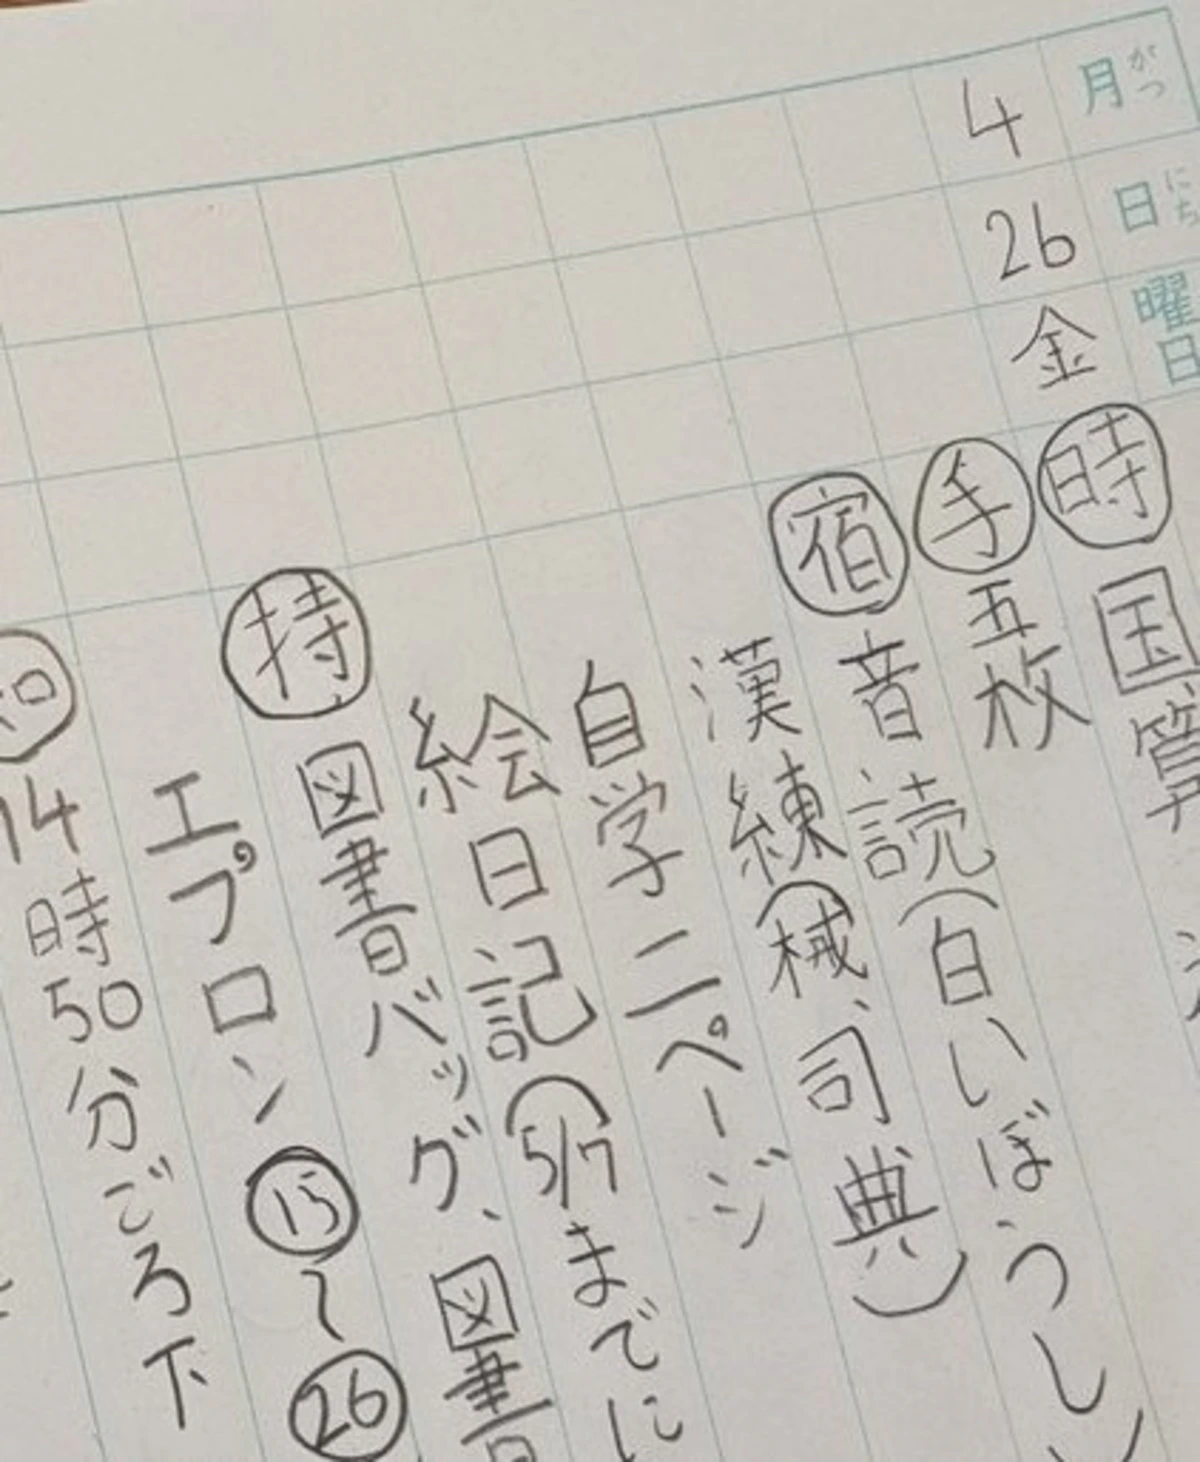 月 がつ
日 にち
曜日
4
26
金
時 国 算
手 五枚
宿 音読(白いぼうし)
漢練(械、司典)
自学二ページ
絵日記(5/7までに
持 図書バッグ、図書
エプロン⑮〜㉖
14時50分ごろ下